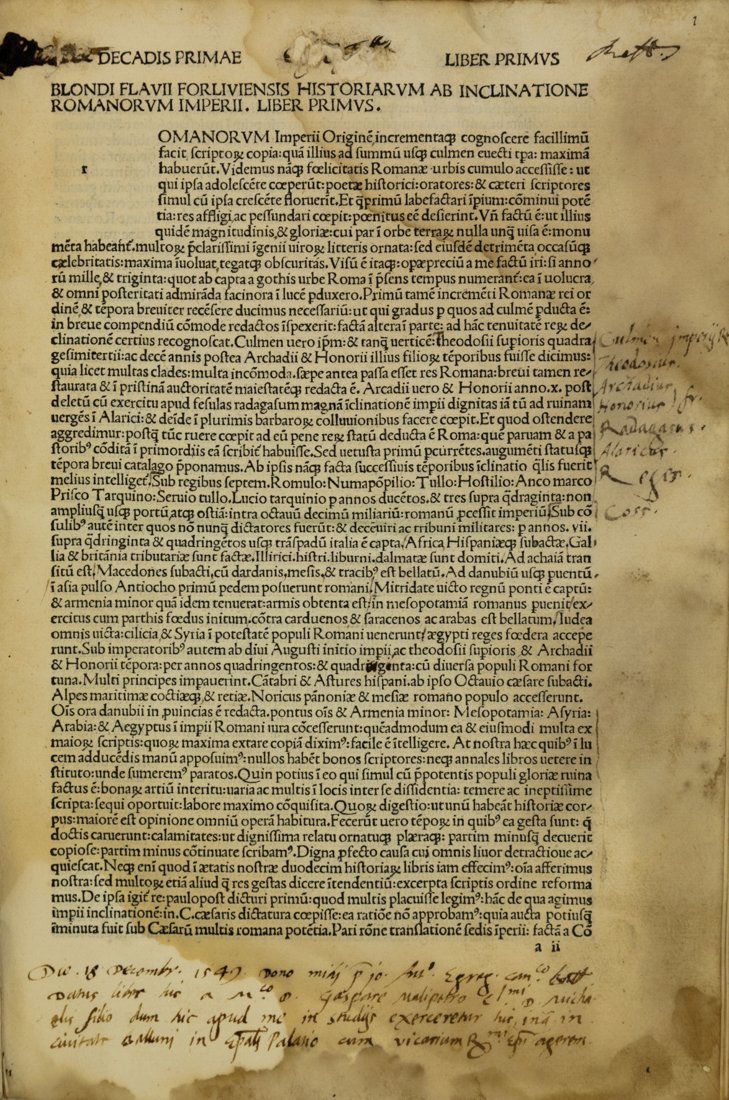 1
DECADIS PRIMAE LIBER PRIMVS
BLONDI FLAVII FORLIVIENSIS HISTORIARVM AB INCLINATIONE
ROMANORVM IMPERII. LIBER PRIMVS.
OMANORVM Imperii Originē, incrementaqꝫ cognoscere facillimū
facit scriptoꝝ copia: quā illius ad summū usqꝫ culmen euecti tpa: maximā
r habuerūt. Videmus nāqꝫ fœlicitatis Romanæ urbis cumulo accessisse: ut
qui ipsa adolescēte cœperūt: poetæ historici: oratores: & cæteri scriptores
simul cū ipsa crescēte floruerit. Et q̄primū labefactari īpium: cōminui potē
tia: res affligi, ac pessundari cœpit: pœnitus eē desierint. Vn̄ factū ē: ut illius
quidē magnitudinis, & gloriæ: cui par ī orbe terraꝝ nulla unq̄ uisa ē: monu
mēta habeant᷑. multoꝝ p̄clarissimi īgenii uiroꝝ litteris ornata: sed eiusdē detrimēta occasūqꝫ
cælebritatis: maxima īuoluat, tegatqꝫ obscuritas. Visū ē itaqꝫ: opæpreciū a me factū iri: si anno
rū mille, & triginta: quot ab capta a gothis urbe Roma ī p̄sens tempus numerant᷑: ea ī uolucra,
& omni posteritati admirāda facinora ī lucē pduxero. Primū tamē incremēti Romanæ rei or
dinē, & tēpora breuiter recēsere ducimus necessariū: ut qui gradus p quos ad culmē pducta ē:
in breue compendiū cōmode redactos īspexerit: factā alteraī parte: ad hāc tenuitatē reꝝ de-
clinationē certius recognoscat. Culmen uero ip̄m: & tanq̄ uerticē: Theodosii supioris quadra
gesimitertii: ac decē annis postea Archadii & Honorii illius filioꝝ tēporibus fuisse dicimus:
quia licet multas clades: multa incōmoda. sæpe antea passa esset res Romana: breui tamen re-
staurata & ī pristinā auctoritatē maiestatēqꝫ redacta ē. Arcadii uero & Honorii anno .x. post
deletū cū exercitu apud fesulas radagasum magnā īclinationē impii dignitas iā tū ad ruinam
uergēs ī Alarici: & deīde ī plurimis barbaroꝝ colluuionibus facere cœpit. Et quod ostendere
aggredimur: postq̄ tūc ruere cœpit ad eū pene reꝝ statū deducta ē Roma: quē paruam & a pa
storibꝰ cōditā ī primordiis eā scribīt᷑ habuisse. Sed uetusta primū pcurrētes. augumēti statusqꝫ
tēpora breui catalago p̄ponamus. Ab ipsis nāqꝫ facta successiuis tēporibus īclinatio q̄lis fuerit
melius intelliget᷑. Sub regibus septem. Romulo: Numapōpilio: Tullo: Hostilio: Anco marco
Prisco Tarquino: Seruio tullo. Lucio tarquinio p annos ducētos, & tres supra q̄draginta: non
ampliusqꝫ usqꝫ portū, atqꝫ ostiā: intra octauū decimū miliariū: romanū pcessit imperiū. Sub cō
sulibꝰ autē inter quos nō nunq̄ dictatores fuerūt: & decēuiri ac tribuni militares: p annos. vii.
supra q̄dringinta & quadringētos usqꝫ trāspadū italia ē capta. Africa, Hispaniæqꝫ subactæ. Gal
lia & britānia tributariæ sunt factæ. Illirici. histri. liburni. dalmatæ sunt domiti. Ad achaiā tran
sitū est. Macedones subacti, cū dardanis, mesis, & tracibꝰ est bellatū. Ad danubiū usqꝫ puentū.
ī asia pulso Antiocho primū pedem posuerunt romani. Mitridate uicto regnū ponti ē captū:
& armenia minor quā idem tenuerat: armis obtenta est: in mesopotamiā romanus puenit ex-
ercitus cum parthis fœdus initum. cōtra carduenos & saracenos ac arabas est bellatum. Iudea
omnis uicta: cilicia, & Syria ī potestatē populi Romani uenerunt: ægypti reges fœdera accepe
runt. Sub imperatoribꝰ autem ab diui Augusti initio impii, ac theodosii supioris & Archadii
& Honorii tēpora: per annos quadringentos: & quadraginta: cū diuersa populi Romani for
tuna. Multi principes impauerint. Cātabri & Astures hispani. ab ipso Octauio cæsare subacti.
Alpes maritimæ coctiæqꝫ, & retiæ. Noricus pānoniæ & mesiæ romano populo accesserunt.
Oīs ora danubii in puincias ē redacta. pontus oīs & Armenia minor: Mesopotamia: Asyria:
Arabia: & Aegyptus ī impii Romani iura cōcesserunt: quēadmodum ea & eiusmodi multa ex
maioꝝ scriptis: quoꝝ maxima extare copiā diximꝰ: facile ē ītelligere. At nostra hæc quibꝰ ī lu
cem adducēdis manū apposuimꝰ: nullos habēt bonos scriptores: neqꝫ annales libros uetere in
stituto: unde sumeremꝰ paratos. Quin potius ī eo qui simul cū p̄potentis populi gloriæ ruina
factus ē: bonaꝝ artiū interitu: uaria ac multis ī locis inter se dissidentia: temere ac ineptissime
scripta: sequi oportuit: labore maximo cōquisita. Quoꝝ digestio: ut unū habeāt historiæ cor-
pus: maiorē est opinione omniū operā habitura. Fecerūt uero tēpoꝝ in quibꝰ ea gesta sunt: q̄
doctis caruerunt: calamitates: ut dignissima relatu ornatuqꝫ plæraqꝫ: partim minusqꝫ decuerit
copiose: partim minus cōtinuate scribamꝰ. Digna pfecto causa cui omnis liuor detractioue ac-
quiescat. Neqꝫ eni quod ī ætatis nostræ duodecim historiaꝝ libris iam effecimꝰ: oīa afferimus
nostra: sed multoꝝ etiā aliud q̄ res gestas dicere ītendentiū: excerpta scriptis ordine reforma
mus. De ipsa igit᷑ re: paulopost dicturi primū: quod multis placuisse legimꝰ: hāc de qua agimus
impii inclinationē: in .C. cæsaris dictatura cœpisse: ea ratiōe nō approbamꝰ: quia aucta potiusqꝫ
īminuta fuit sub Cæsarū multis romana potētia. Pari rōne translationē sedis īperii: factā a Cō
a ii
Culmen imperij Ro
Theodosius.
Archadius
Honorius fr.
Radagasus.
Alaricus.
Reges.
Coss.
Die 18 Decembr. 1549 dono
datus liber hic a Gaspare Malipetro
filio dum hic apud me in studijs exerceretur hic in
ciuitate Belluni in Palatio cum vicarium ageren.